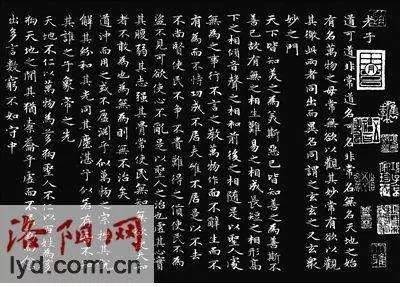 老子
道可道非常道名可名非常名無名天地之始
有名萬物之母常無欲以觀其妙常有欲以觀
其徼此兩者同出而異名同謂之玄玄之又玄衆
妙之門
天下皆知美之為美斯惡已皆知善之為善斯不
善已故有無之相生難易之相成長短之相形高
下之相傾音聲之相和前後之相隨是以聖人處
無為之事行不言之教萬物作而不辭生而不
有為而不恃功成不居夫唯不居是以不去
不尚賢使民不爭不貴難得之貨使民不為
盜不見可欲使心不亂是以聖人之治也虛其心實
其腹弱其志強其骨常使民無知無欲使夫知
者不敢為也為無為則無不治矣
道沖而用之或不盈淵似萬物之宗挫其
解其紛和其光同其塵湛似或存吾不知
誰之子象帝之先
天地不仁以萬物為芻狗聖人不仁以百姓為
狗天地之間其猶橐籥乎虛而不屈
出多言數窮不如守中
洛阳网
lyd.com.cn